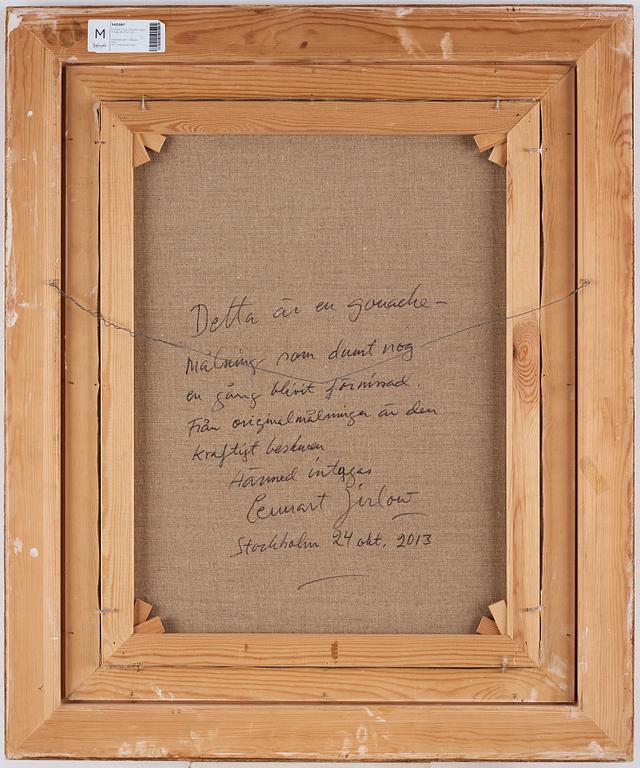 M
Detta är en gouache-
målning som dumt nog
en gång blivit fernissad.
Från originalmålningen är den
kraftigt beskuren
Härmed intygas
Lennart Jirlow
Stockholm 24 okt. 2013